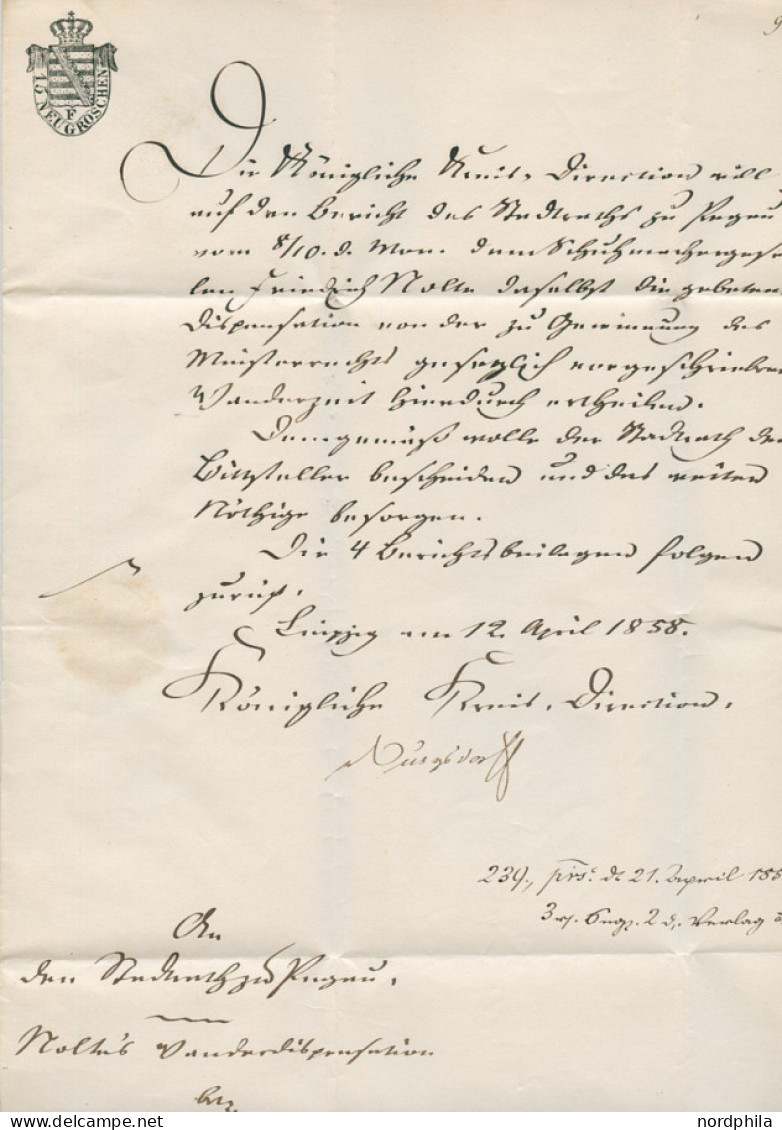 15 NEUGROSCHEN
F
9
Die Königliche Kreis-Direction will
auf den Bericht des Stadtraths zu Pegau
vom 8/10. d. Mon. dem Schuhmachergesel
len Friedrich Nolte daselbst die gebetene
Dispensation von der zu Gewinnung des
Meisterrechts gesetzlich vorgeschriebenen
Wanderzeit hierdurch ertheilen.
Demgemäß wolle der Stadtrath den
Bittsteller bescheiden und das weiter
Nöthige besorgen.
Die 4 Berichtsbeilagen folgen
zurück.
Leipzig am 12. April 1858.
Königliche Kreis-Direction.
239., präs. d. 21. April 185
An
den Stadtrath zu Pegau.
Nolte's Wanderdispensation
betr.
nordphila